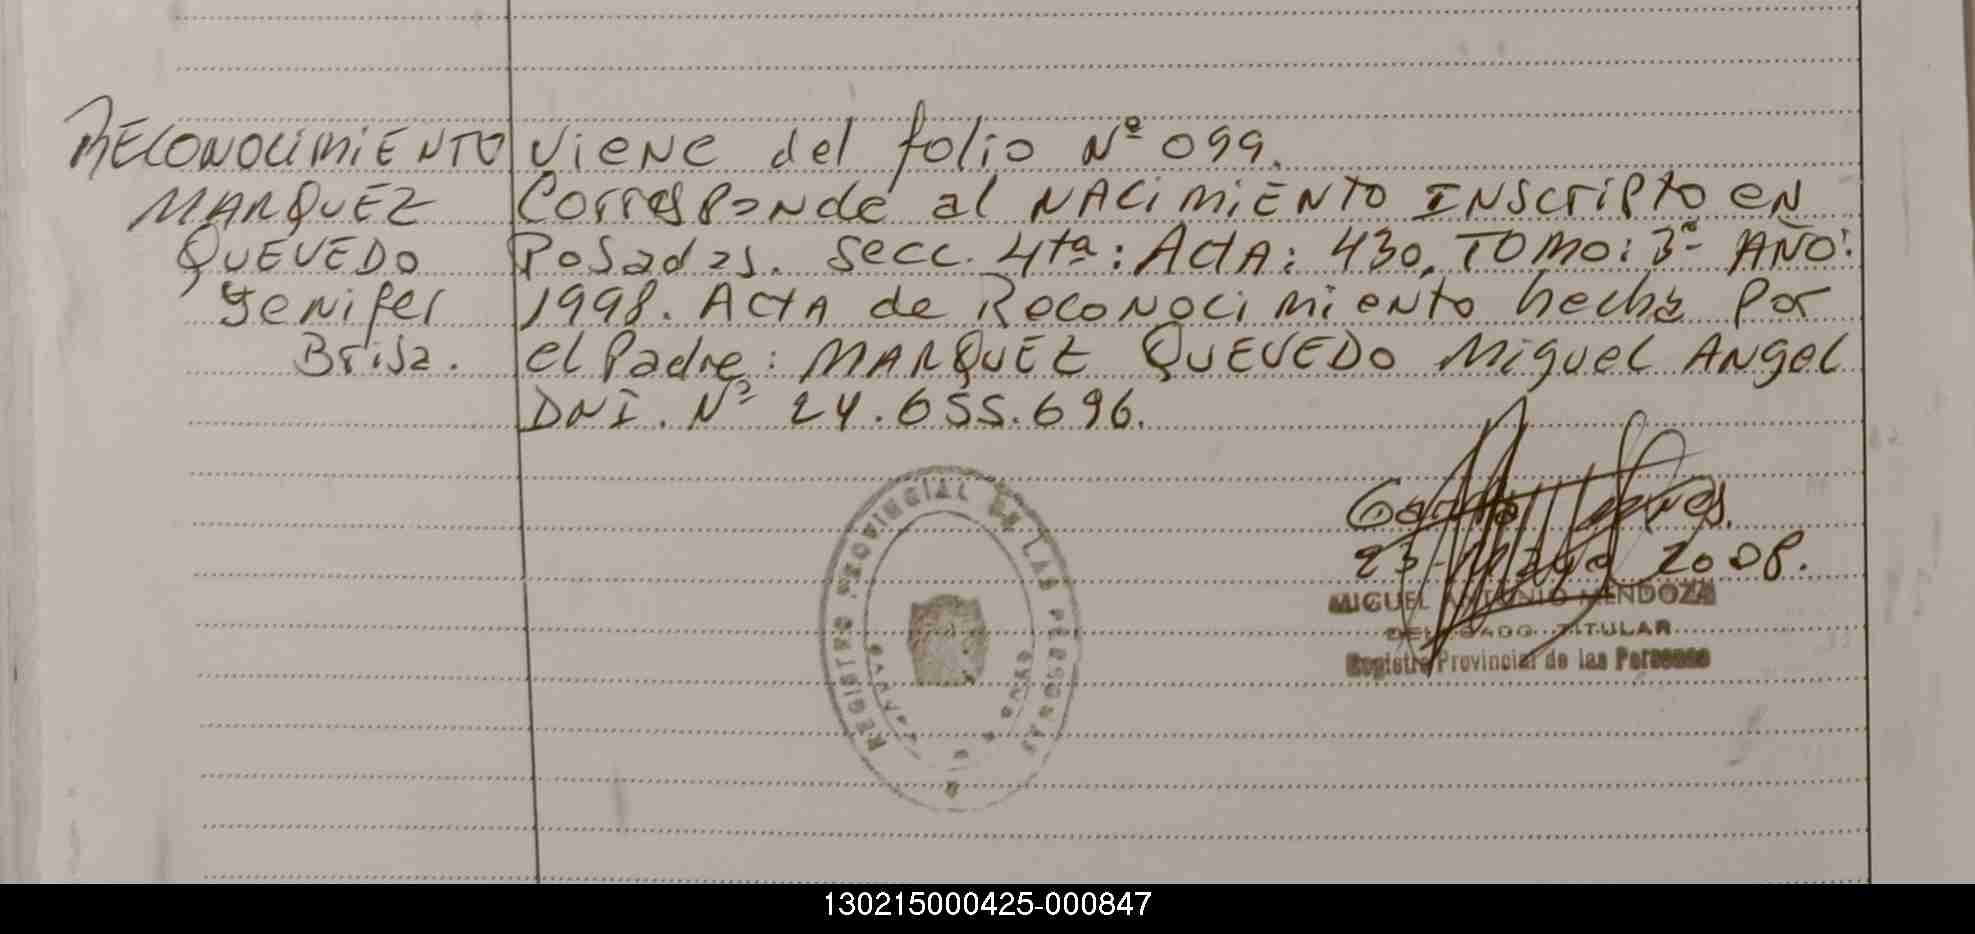 RECONOCIMIENTO
MARQUEZ
QUEVEDO
Jenifer
Brisa.
Viene del folio Nº 099.
Corresponde al NACIMIENTO INSCRIPTO en
Posadas. Secc. 4ta: Acta: 430. TOMO: 3º- AÑO:
1998. ACTA de Reconocimiento hecha Por
el Padre: MARQUEZ QUEVEDO Miguel Angel
DNI. Nº 24.655.696.
REGISTRO PROVINCIAL DE LAS PERSONAS
23 Mayo 2008.
MIGUEL ANTONIO MENDOZA
DELEGADO TITULAR
Registro Provincial de las Personas
130215000425-000847